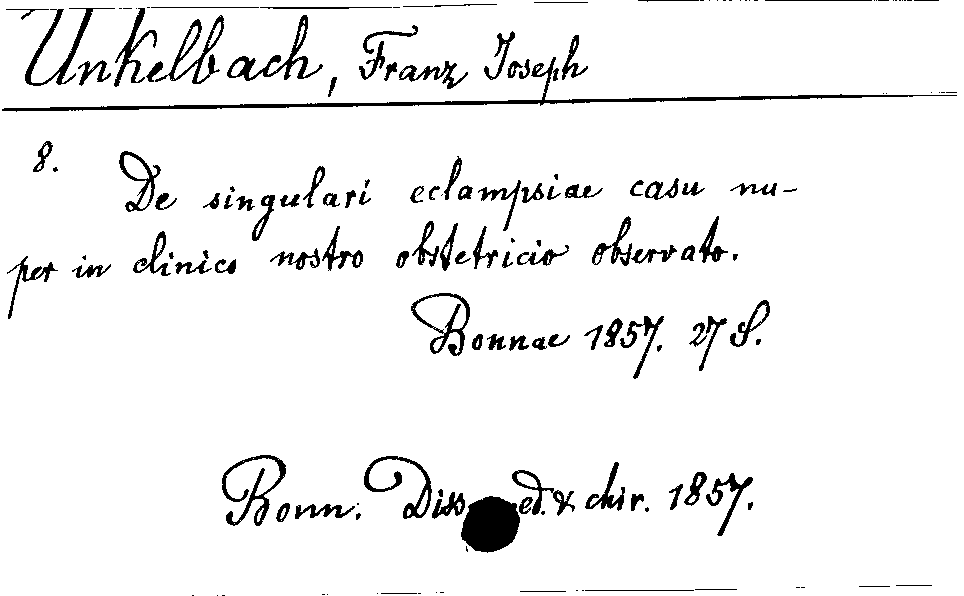 Unkelbach, Franz Joseph
8.
De singulari eclampsiae casu nu-
per in clinico nostro obstetricio observato.
Bonnae 1857. 27 S.
Bonn. Diss. ed. & chir. 1857.